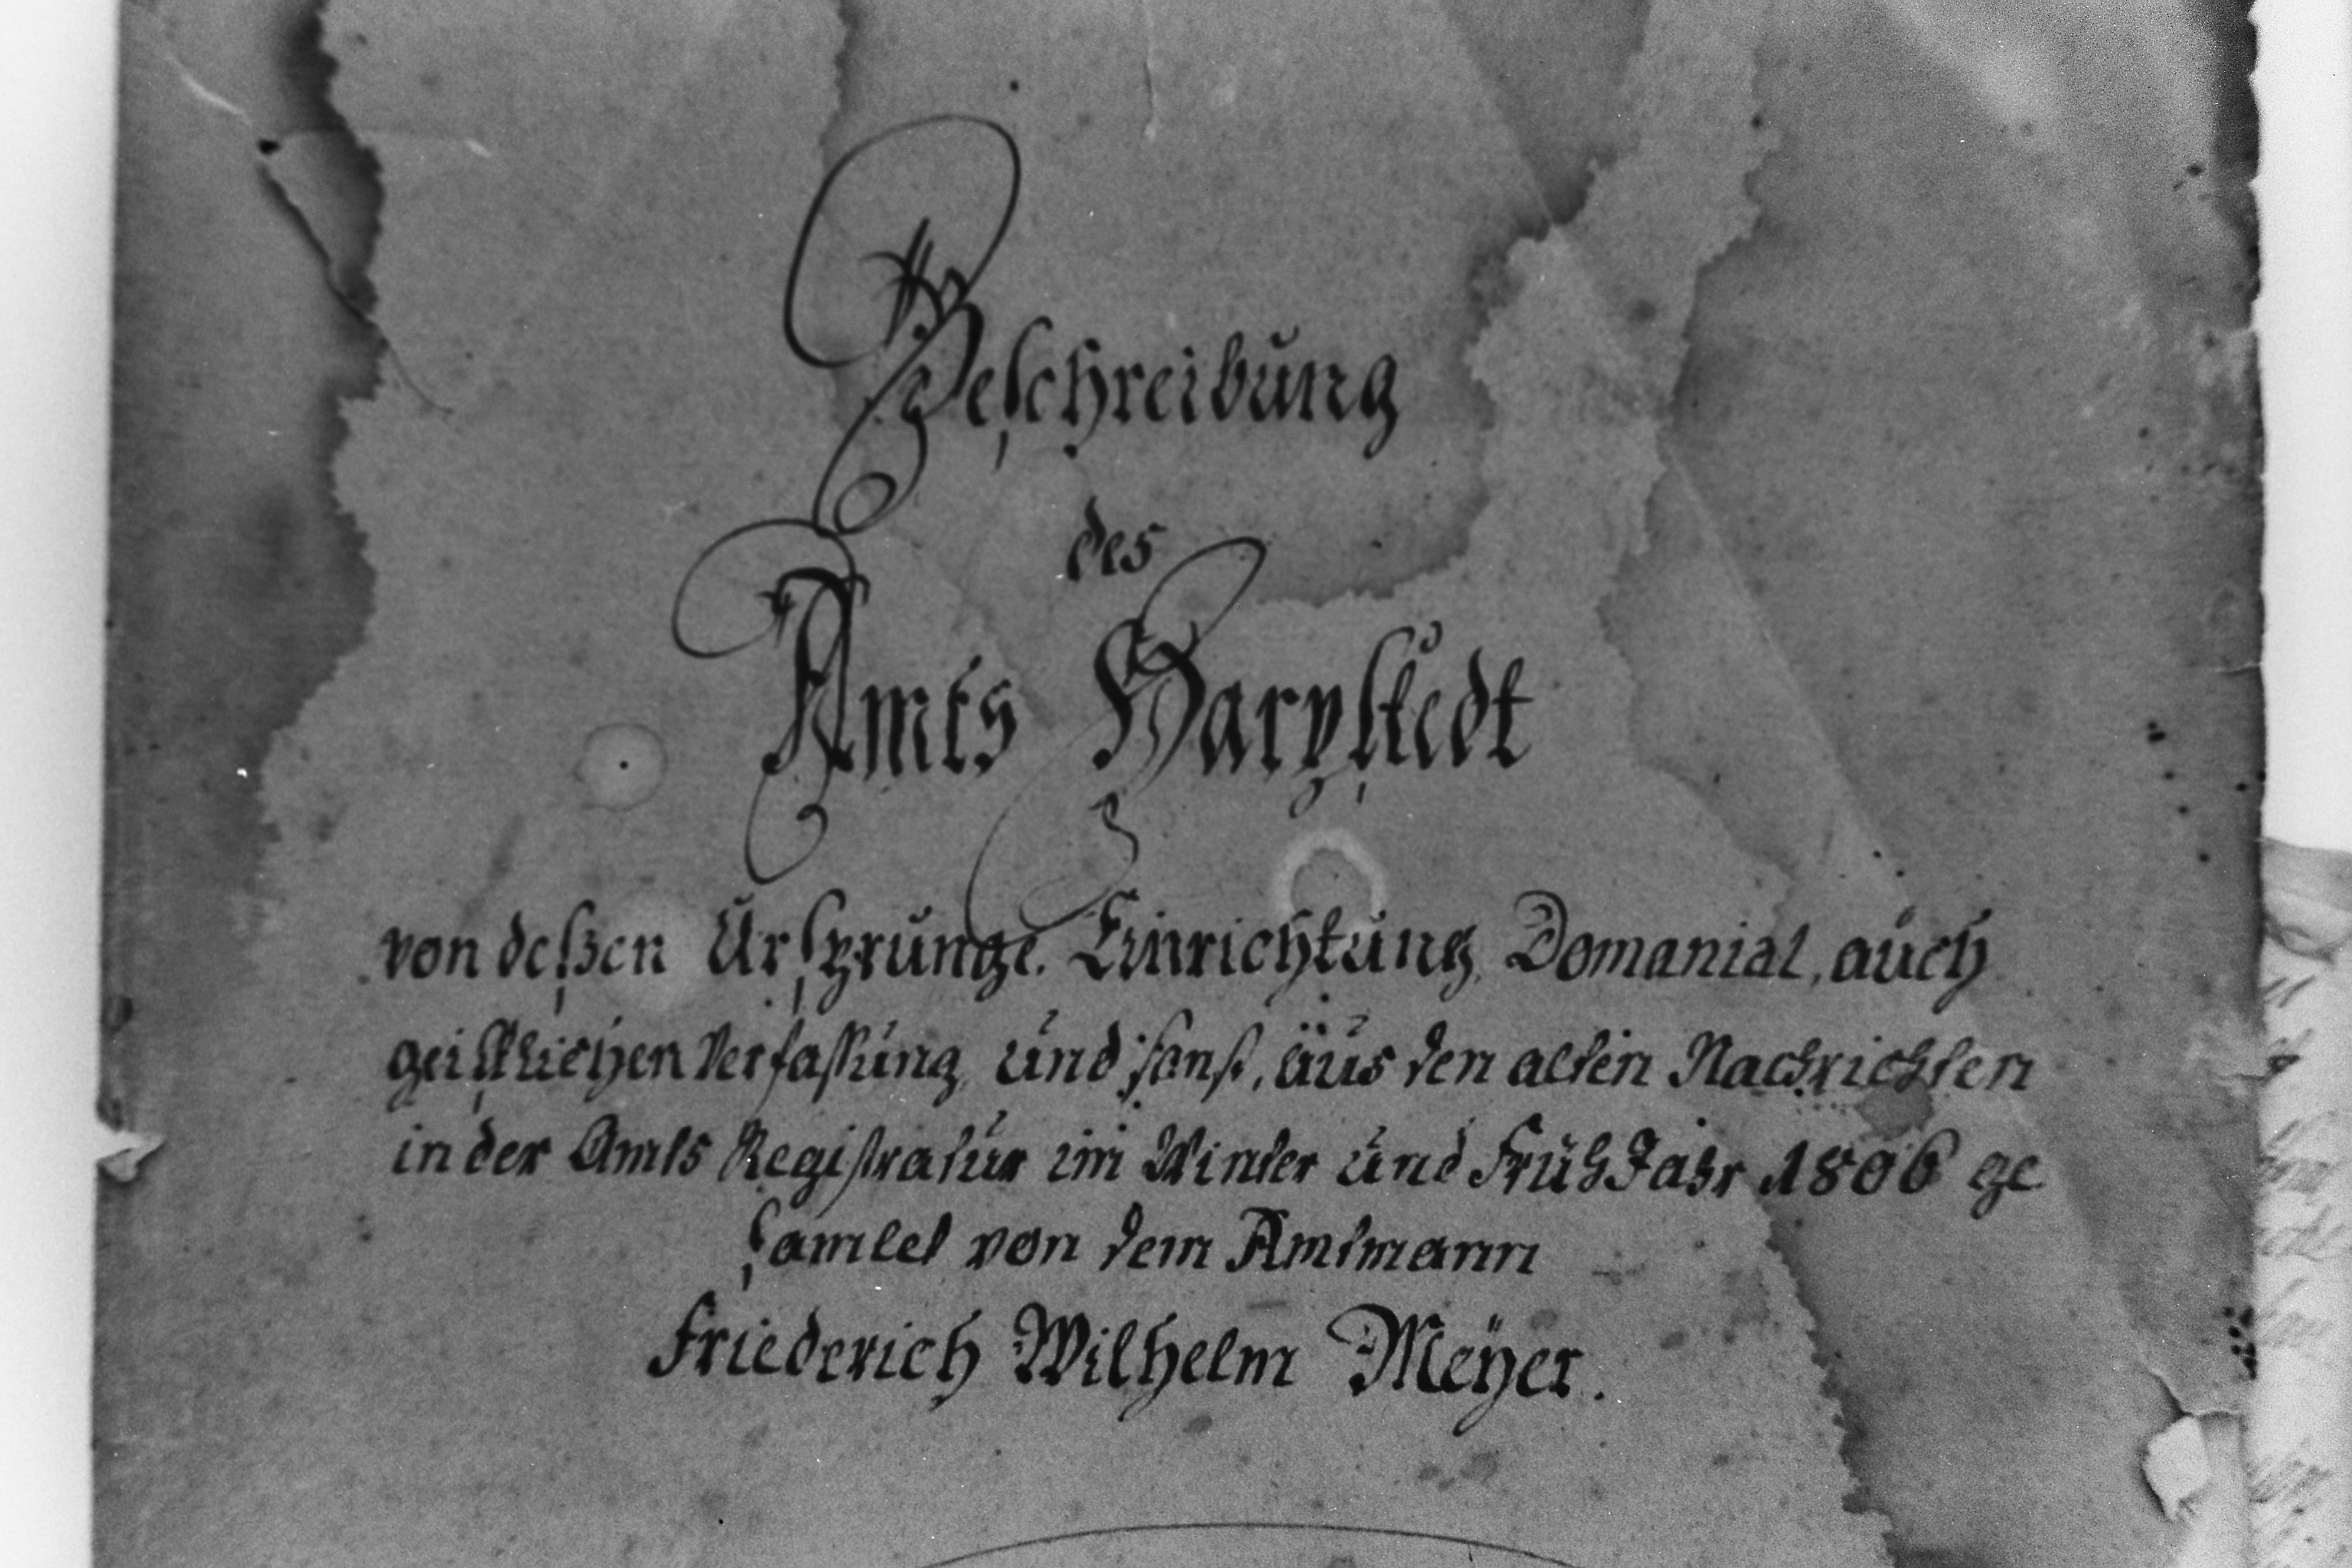 Beschreibung
des
Amts Harpstedt
von deßen Ursprunge. Einrichtung, Domanial, auch
geistlichen Verfassung, und sonst, aus den alten Nachrichten
in der Amts Registratur im Winter und FrühJahr 1806 ge
samlet von dem Amtmann
Friederich Wilhelm Meÿer.